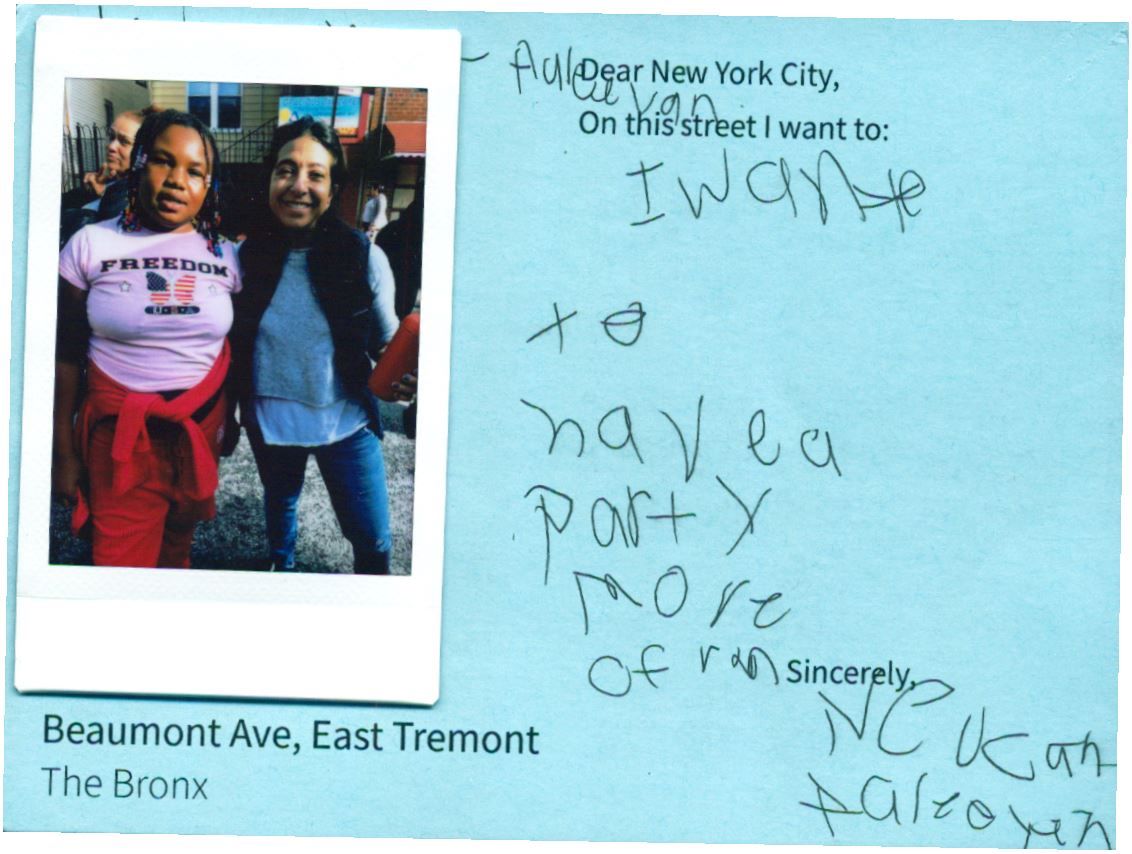 Dear New York City,
On this street I want to:
I wante
to
have a
party
more
of
Sincerely,
FREEDOM
USA
Beaumont Ave, East Tremont
The Bronx